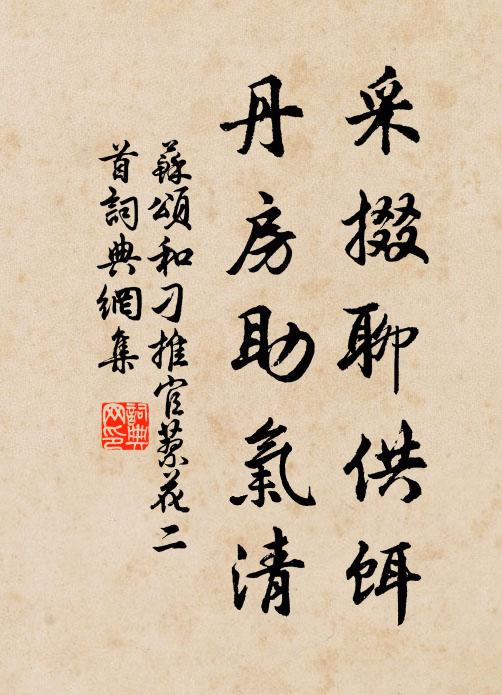 采掇聊供餌
丹房助氣清
蘇頌和刁推官蔾花二
首詞典網集
詞典
网印